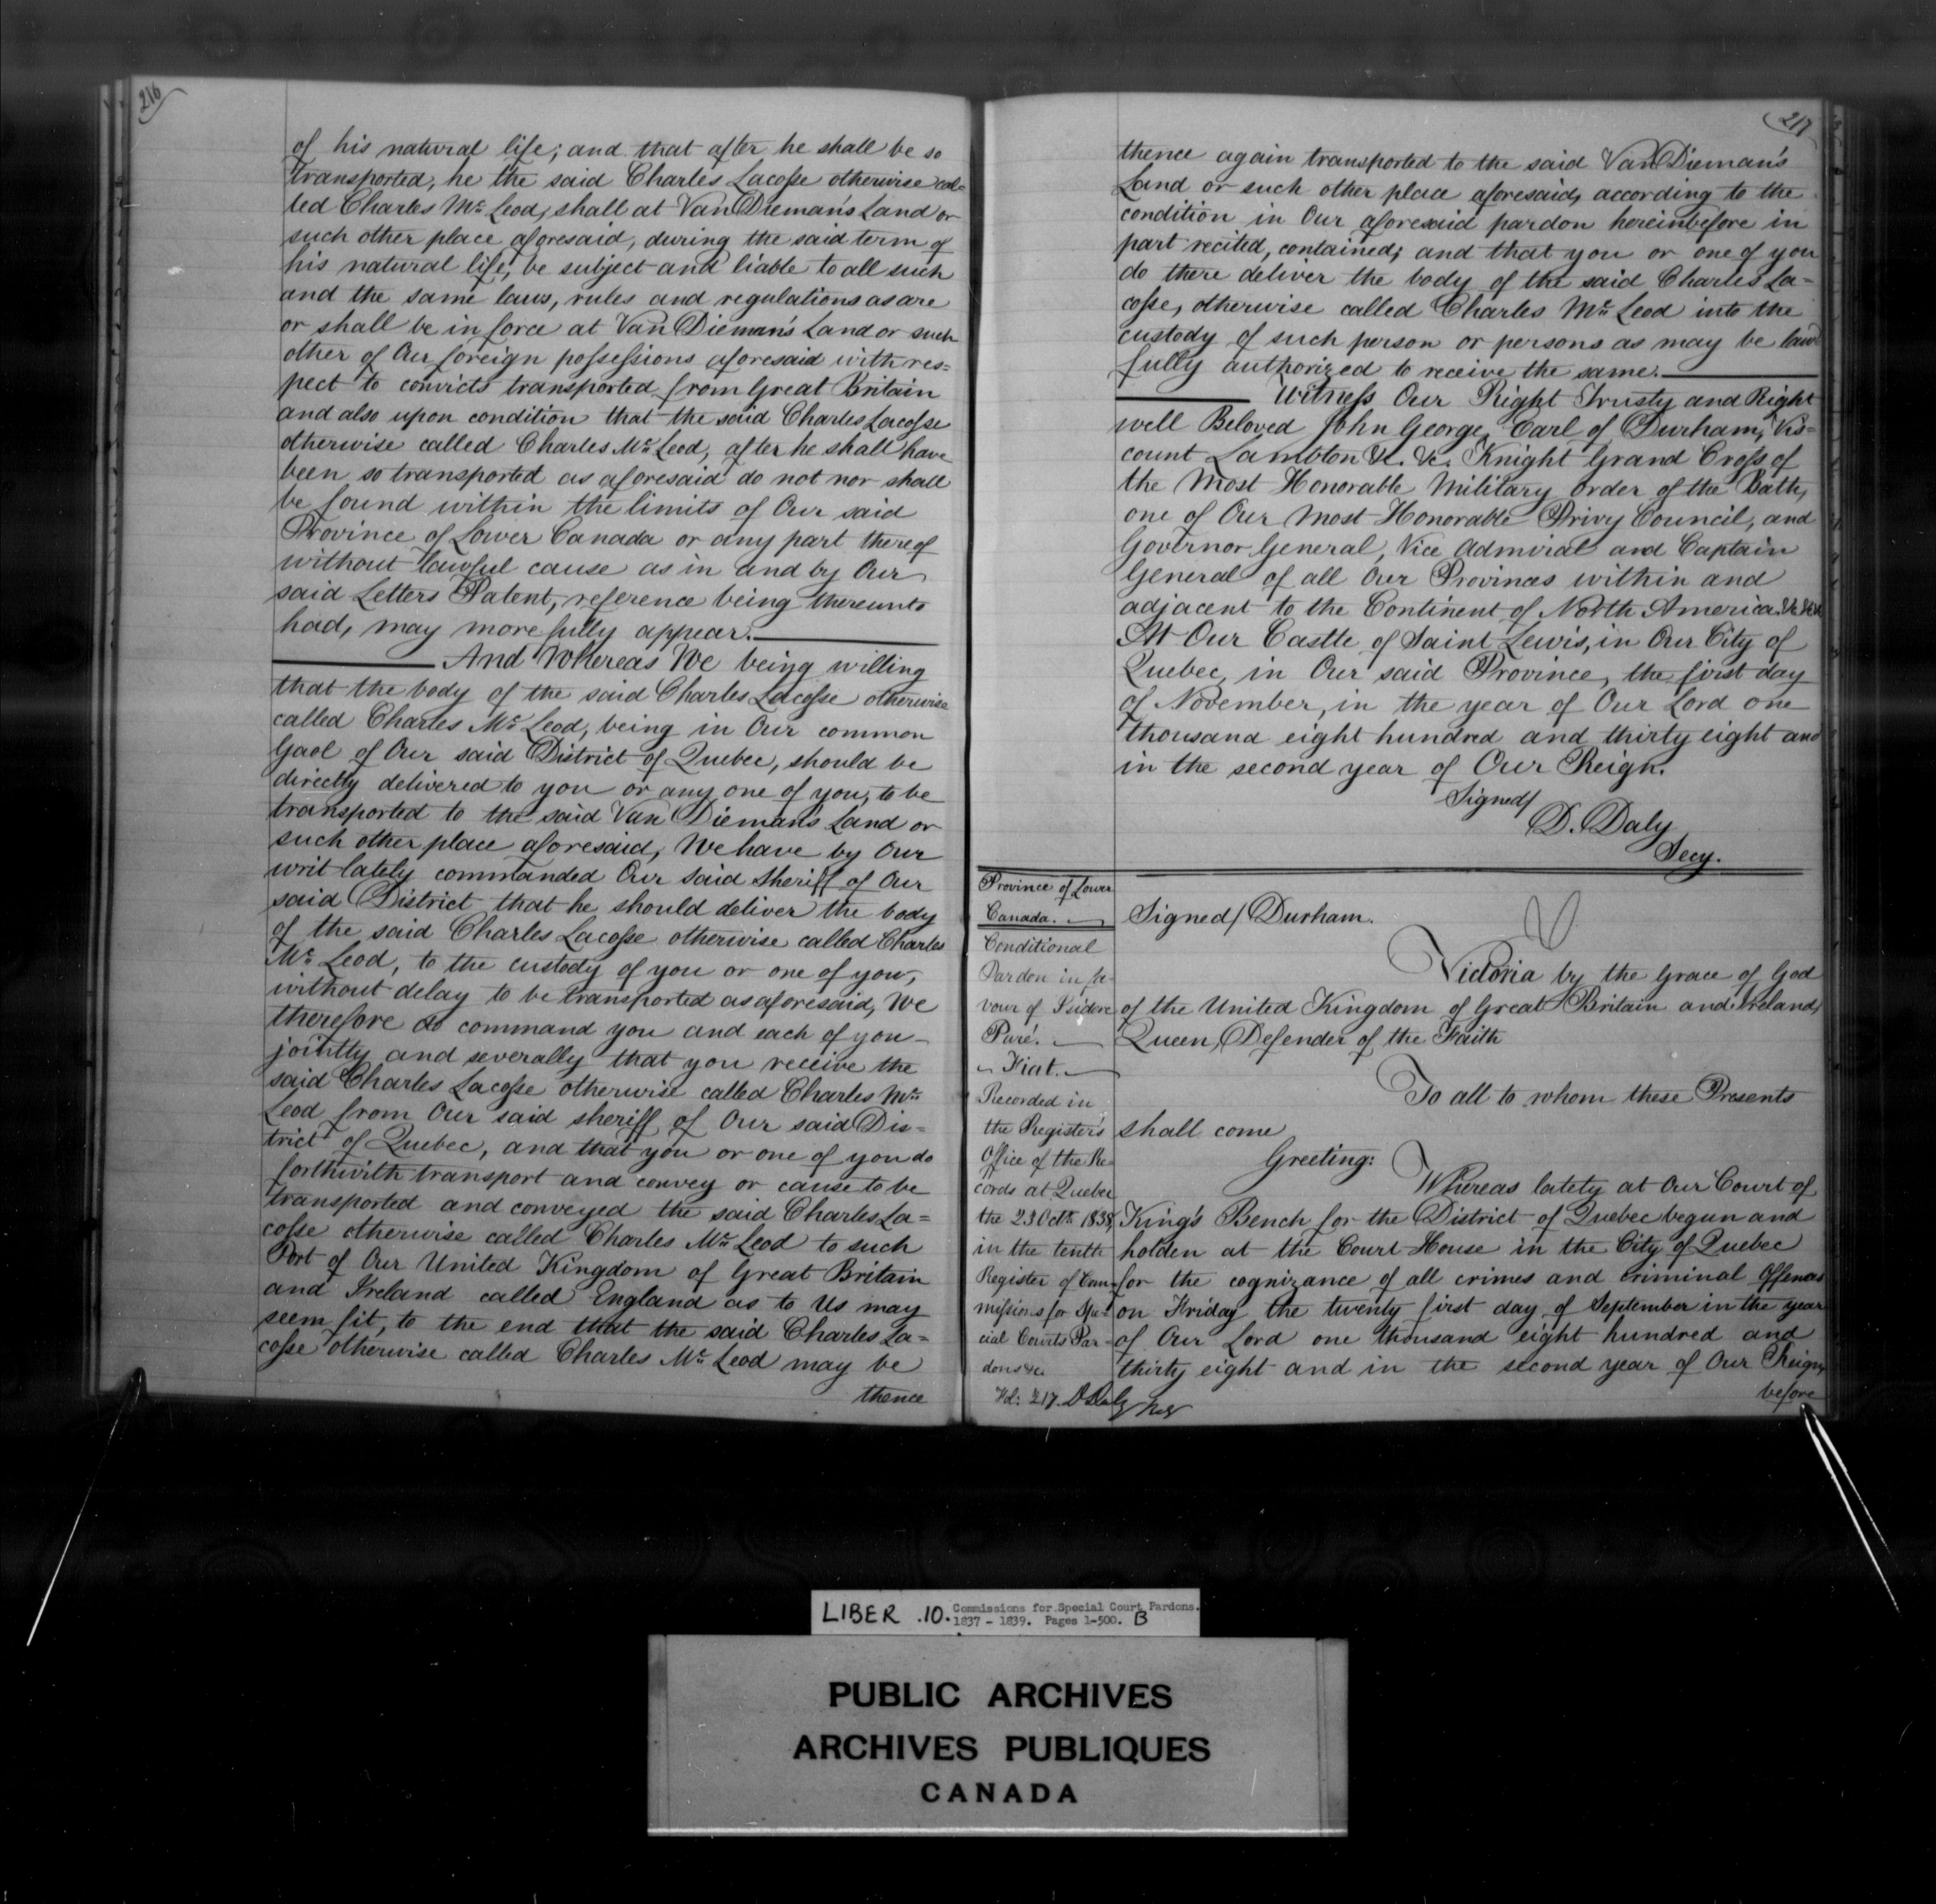 216
of his natural life; and that after he shall be so
transported, he the said Charles Lacosse otherwise cal-
led Charles Mc Leod, shall at Van Dieman's Land or
such other place aforesaid, during the said term of
his natural life, be subject and liable to all such
and the same laws, rules and regulations as are
or shall be in force at Van Dieman's Land or such
other of Our foreign possessions aforesaid with res=
pect to convicts transported from Great Britain
and also upon condition that the said Charles Lacosse
otherwise called Charles Mc Leod, after he shall have
been so transported as aforesaid do not nor shall
be found within the limits of Our said
Province of Lower Canada or any part thereof
without lawful cause as in and by Our
said Letters Patent, reference being thereunto
had, may more fully appear.
And Whereas We being willing
that the body of the said Charles Lacosse otherwise
called Charles Mc Leod, being in Our common
Gaol of Our said District of Quebec, should be
directly delivered to you or any one of you, to be
transported to the said Van Dieman's Land or
such other place aforesaid, We have by Our
writ lately commanded Our said Sheriff of Our
said District that he should deliver the body
of the said Charles Lacosse otherwise called Charles
Mc Leod, to the custody of you or one of you,
without delay to be transported as aforesaid, We
therefore do command you and each of you
jointly and severally that you receive the
said Charles Lacosse otherwise called Charles Mc
Leod from Our said sheriff of Our said Dis=
trict of Quebec, and that you or one of you do
forthwith transport and convey or cause to be
transported and conveyed the said Charles La=
cosse otherwise called Charles Mc Leod to such
Port of Our United Kingdom of Great Britain
and Ireland called England as to Us may
seem fit, to the end that the said Charles La=
cosse otherwise called Charles Mc Leod may be
thence
217
thence again transported to the said Van Dieman's
Land or such other place aforesaid, according to the
condition in Our aforesaid pardon hereinbefore in
part recited, contained; and that you or one of you
do there deliver the body of the said Charles La=
cosse, otherwise called Charles Mc Leod into the
custody of such person or persons as may be law
fully authorized to receive the same.
Witness Our Right Trusty and Right
well Beloved John George, Earl of Durham, Vis=
count Lambton &c. &c. Knight Grand Cross of
the Most Honorable Military Order of the Bath,
one of Our Most Honorable Privy Council, and
Governor General, Vice Admiral and Captain
General of all Our Provinces within and
adjacent to the Continent of North America &c &c &c
At Our Castle of Saint Lewis, in Our City of
Quebec, in Our said Province, the first day
of November, in the year of Our Lord one
thousand eight hundred and thirty eight and
in the second year of Our Reign.
Signed/
D. Daly
Secy.
Province of Lower
Canada.
Conditional
Pardon in fa-
vour of Isidore
Paré.
Fiat.
Recorded in
the Register's
Office of the Re-
cords at Quebec
the 23 Octr. 1838,
in the tenth
Register of Com-
missions for Spe-
cial Courts Par-
dons &c
Fol: 217. D Daly Reg
Signed/ Durham.
Victoria by the Grace of God
of the United Kingdom of Great Britain and Ireland,
Queen, Defender of the Faith
To all to whom these Presents
shall come
Greeting:
Whereas lately at Our Court of
King's Bench for the District of Quebec begun and
holden at the Court House in the City of Quebec
for the cognizance of all crimes and criminal Offences
on Friday the twenty first day of September in the year
of Our Lord one thousand eight hundred and
thirty eight and in the second year of Our Reign,
before
LIBER .10. Commissions for Special Court Pardons.
1837 - 1839. Pages 1-500. B
PUBLIC ARCHIVES
ARCHIVES PUBLIQUES
CANADA